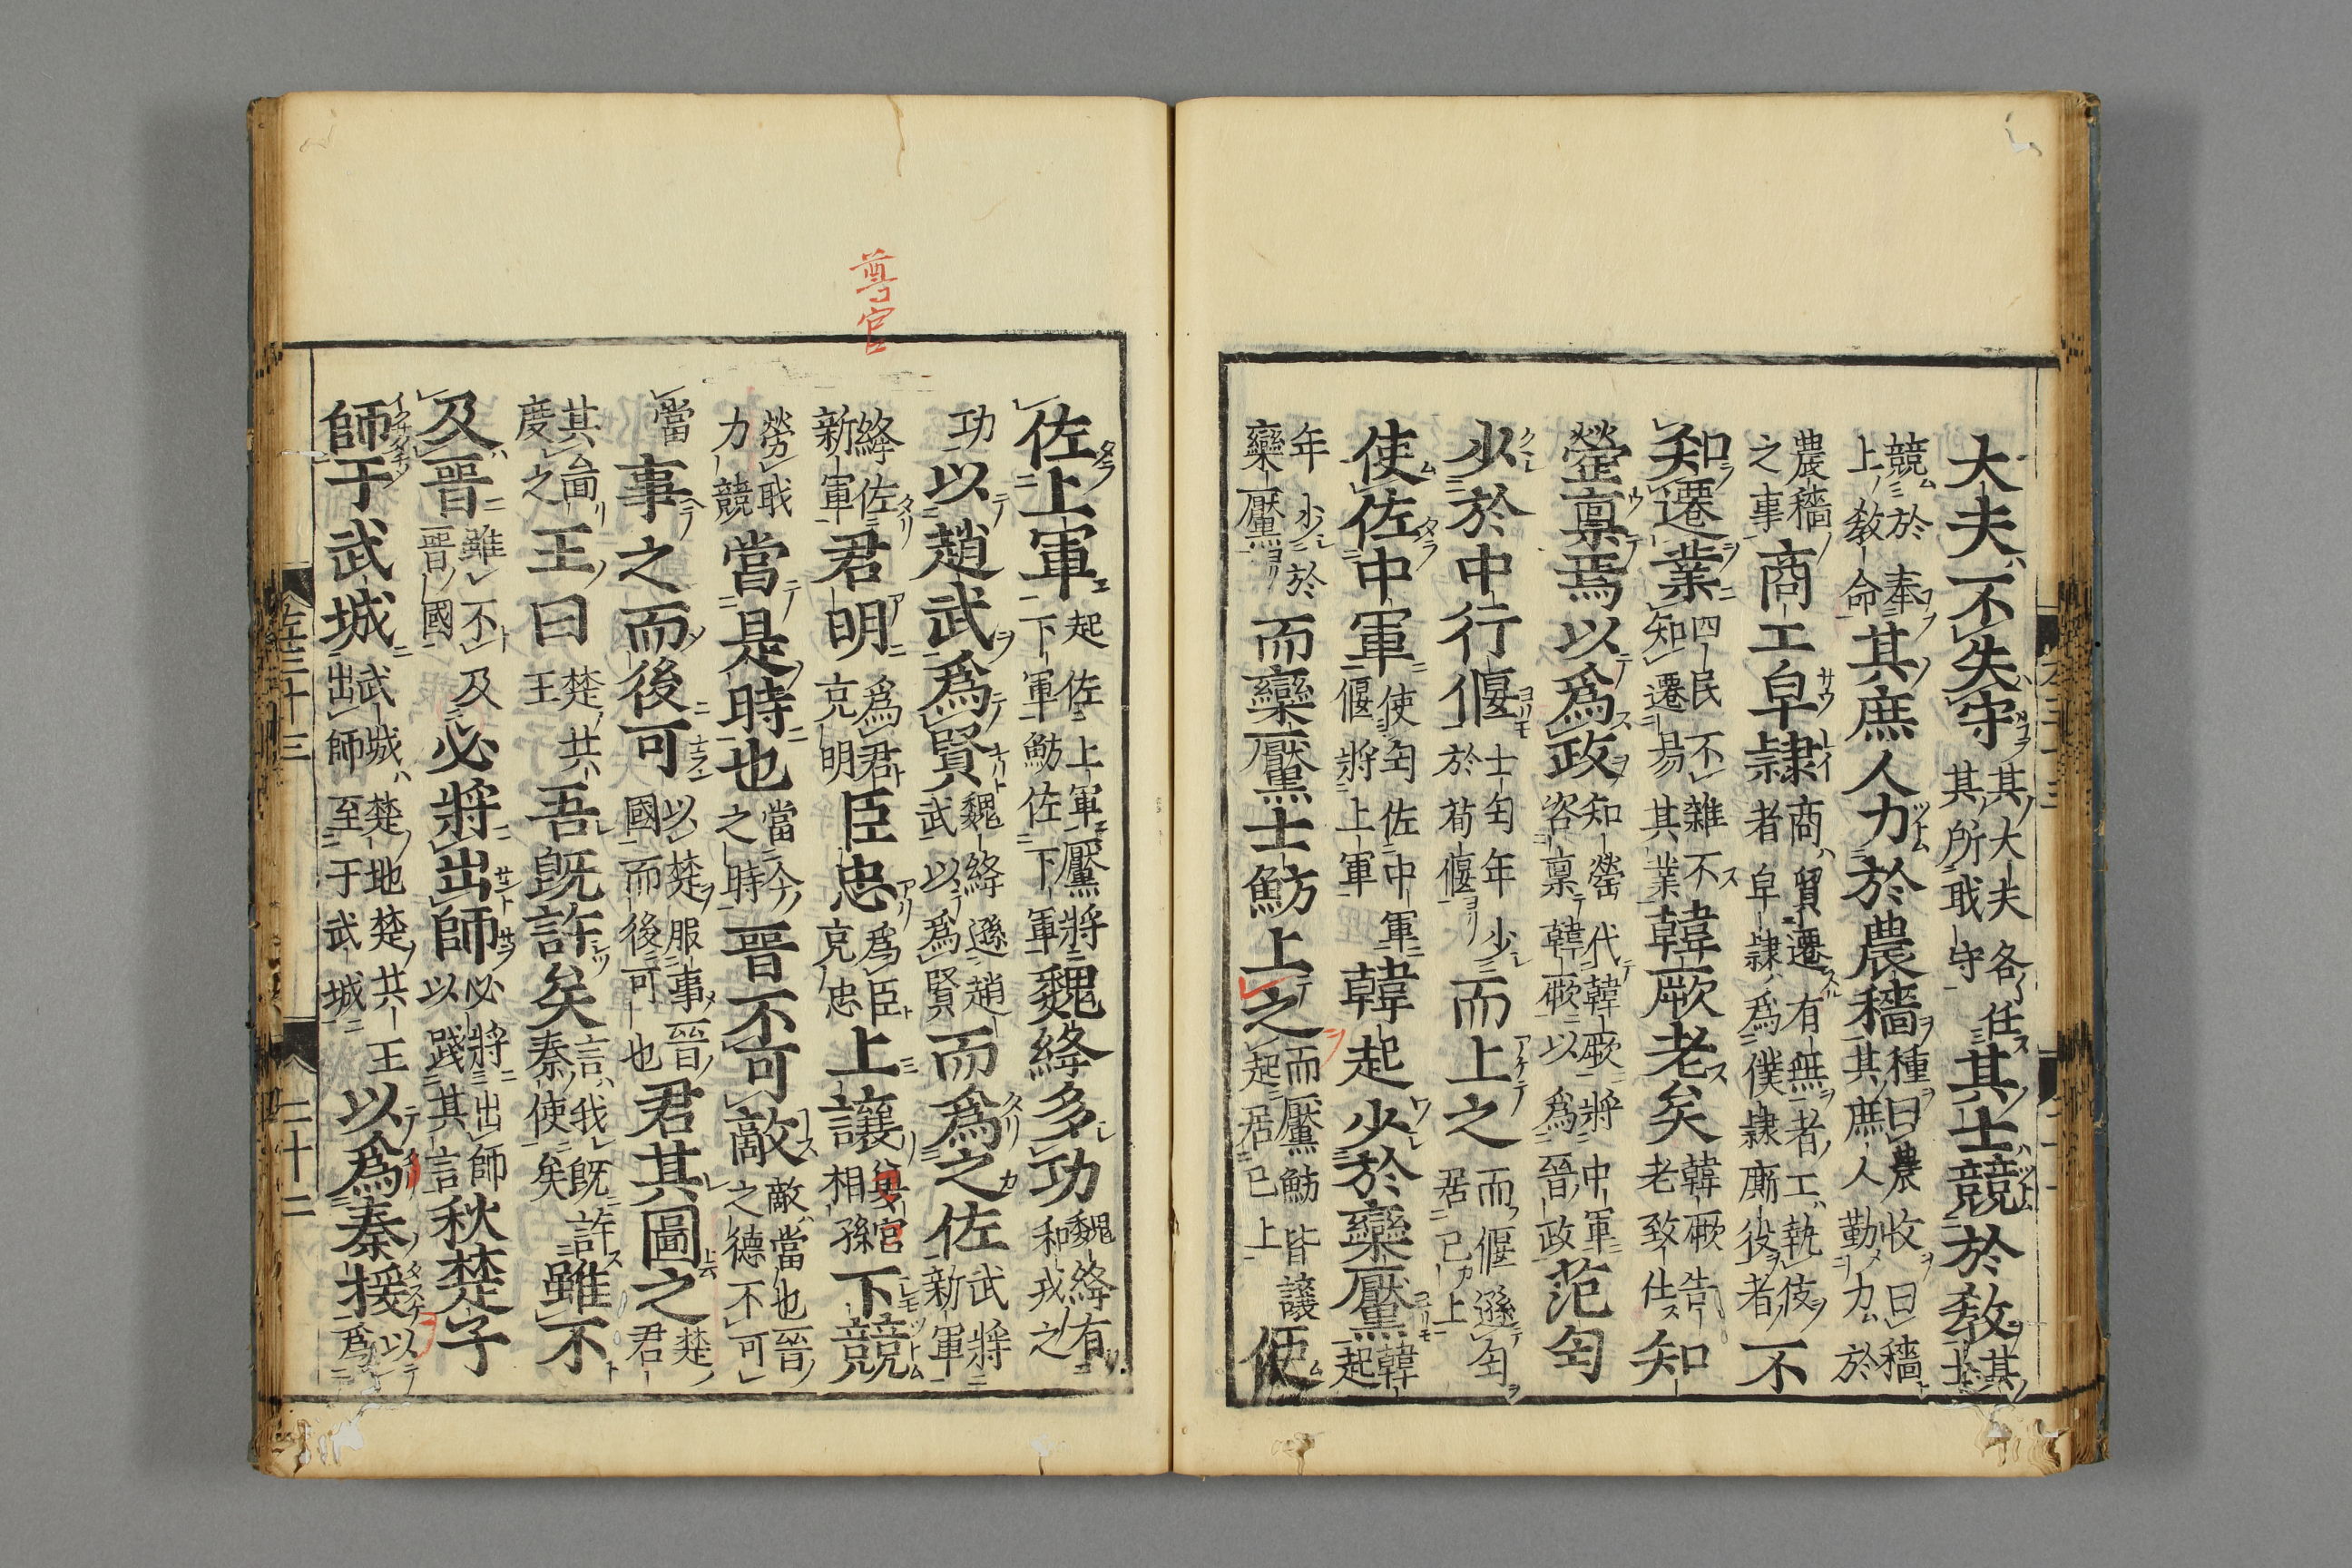 大夫不失守其大夫各任其所職守其士競於教其士
競於奉上教命其庶人力於農穡種曰農收曰穡其庶人勤力於
農穡之事商工皁隷商貿遷有無者工執伎者皁隷為僕隷廝役者不
知遷業四民不雜不知遷易其業韓厥老矣韓厥告老致仕知
罃禀焉以為政知罃代韓厥將中軍咨禀韓厥以為晉政范匄
少於中行偃士匄年少於荀偃而上之而偃遜匄居己上
使佐中軍使匄佐中軍偃將上軍韓起少於欒黶韓起
年少於欒黶而欒黶士魴上之而黶魴皆讓起居己上使
佐上軍起佐上軍黶將下軍魴佐下軍魏絳多功魏絳有和戎之
功以趙武為賢魏絳遜趙武以為賢而為之佐武將新軍
絳佐新軍君明為君克明臣忠為臣克忠上讓其官相孫下競
勞職力競當是時也當今之時晉不可敵敵當也晉之德不可
當事之而後可以楚服事晉國而後可也君其圖之楚君
其啚度之王曰楚共王吾既許矣言我既許秦使矣雖不
及晉雖不及晉國必將出師必將出師以踐其言秋楚子
師于武城武城楚地楚共王出師至于武城以為秦援以為
尊官
左三十三
二十二